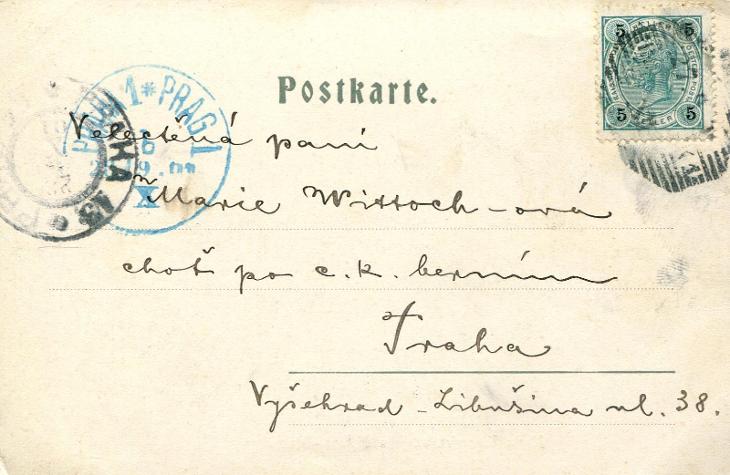 Postkarte.
PRAHA 1 * PRAG 1
X
PRAHA 13
5 5
5 5
HELLER
Velectěná paní
Marie Wittoch-ová
choť po c. k. berním
Praha
Vyšehrad - Libušina ul. 38.